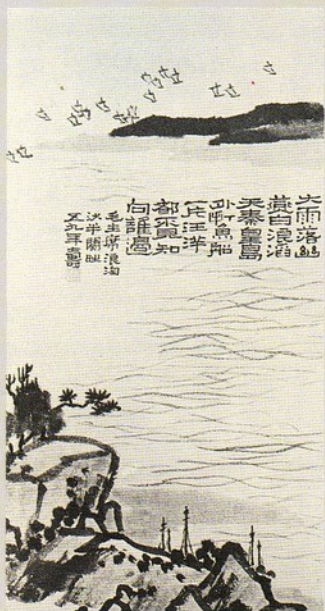 大雨落幽
燕白浪滔
天秦皇島
外打魚船
一片汪洋
都不見知
向誰邊
毛主席浪淘
沙半闋
五九年